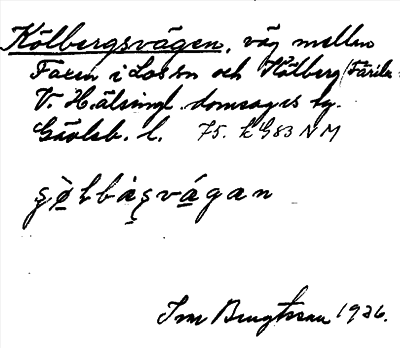 Kölbergsvägen, väg mellan
Faxen i Los sn och Kölberg, Färila
V. Hälsingl. domsagas tg.
Gävleb. l. 75. k G83 NM
Ivar Bengtsson 1926.